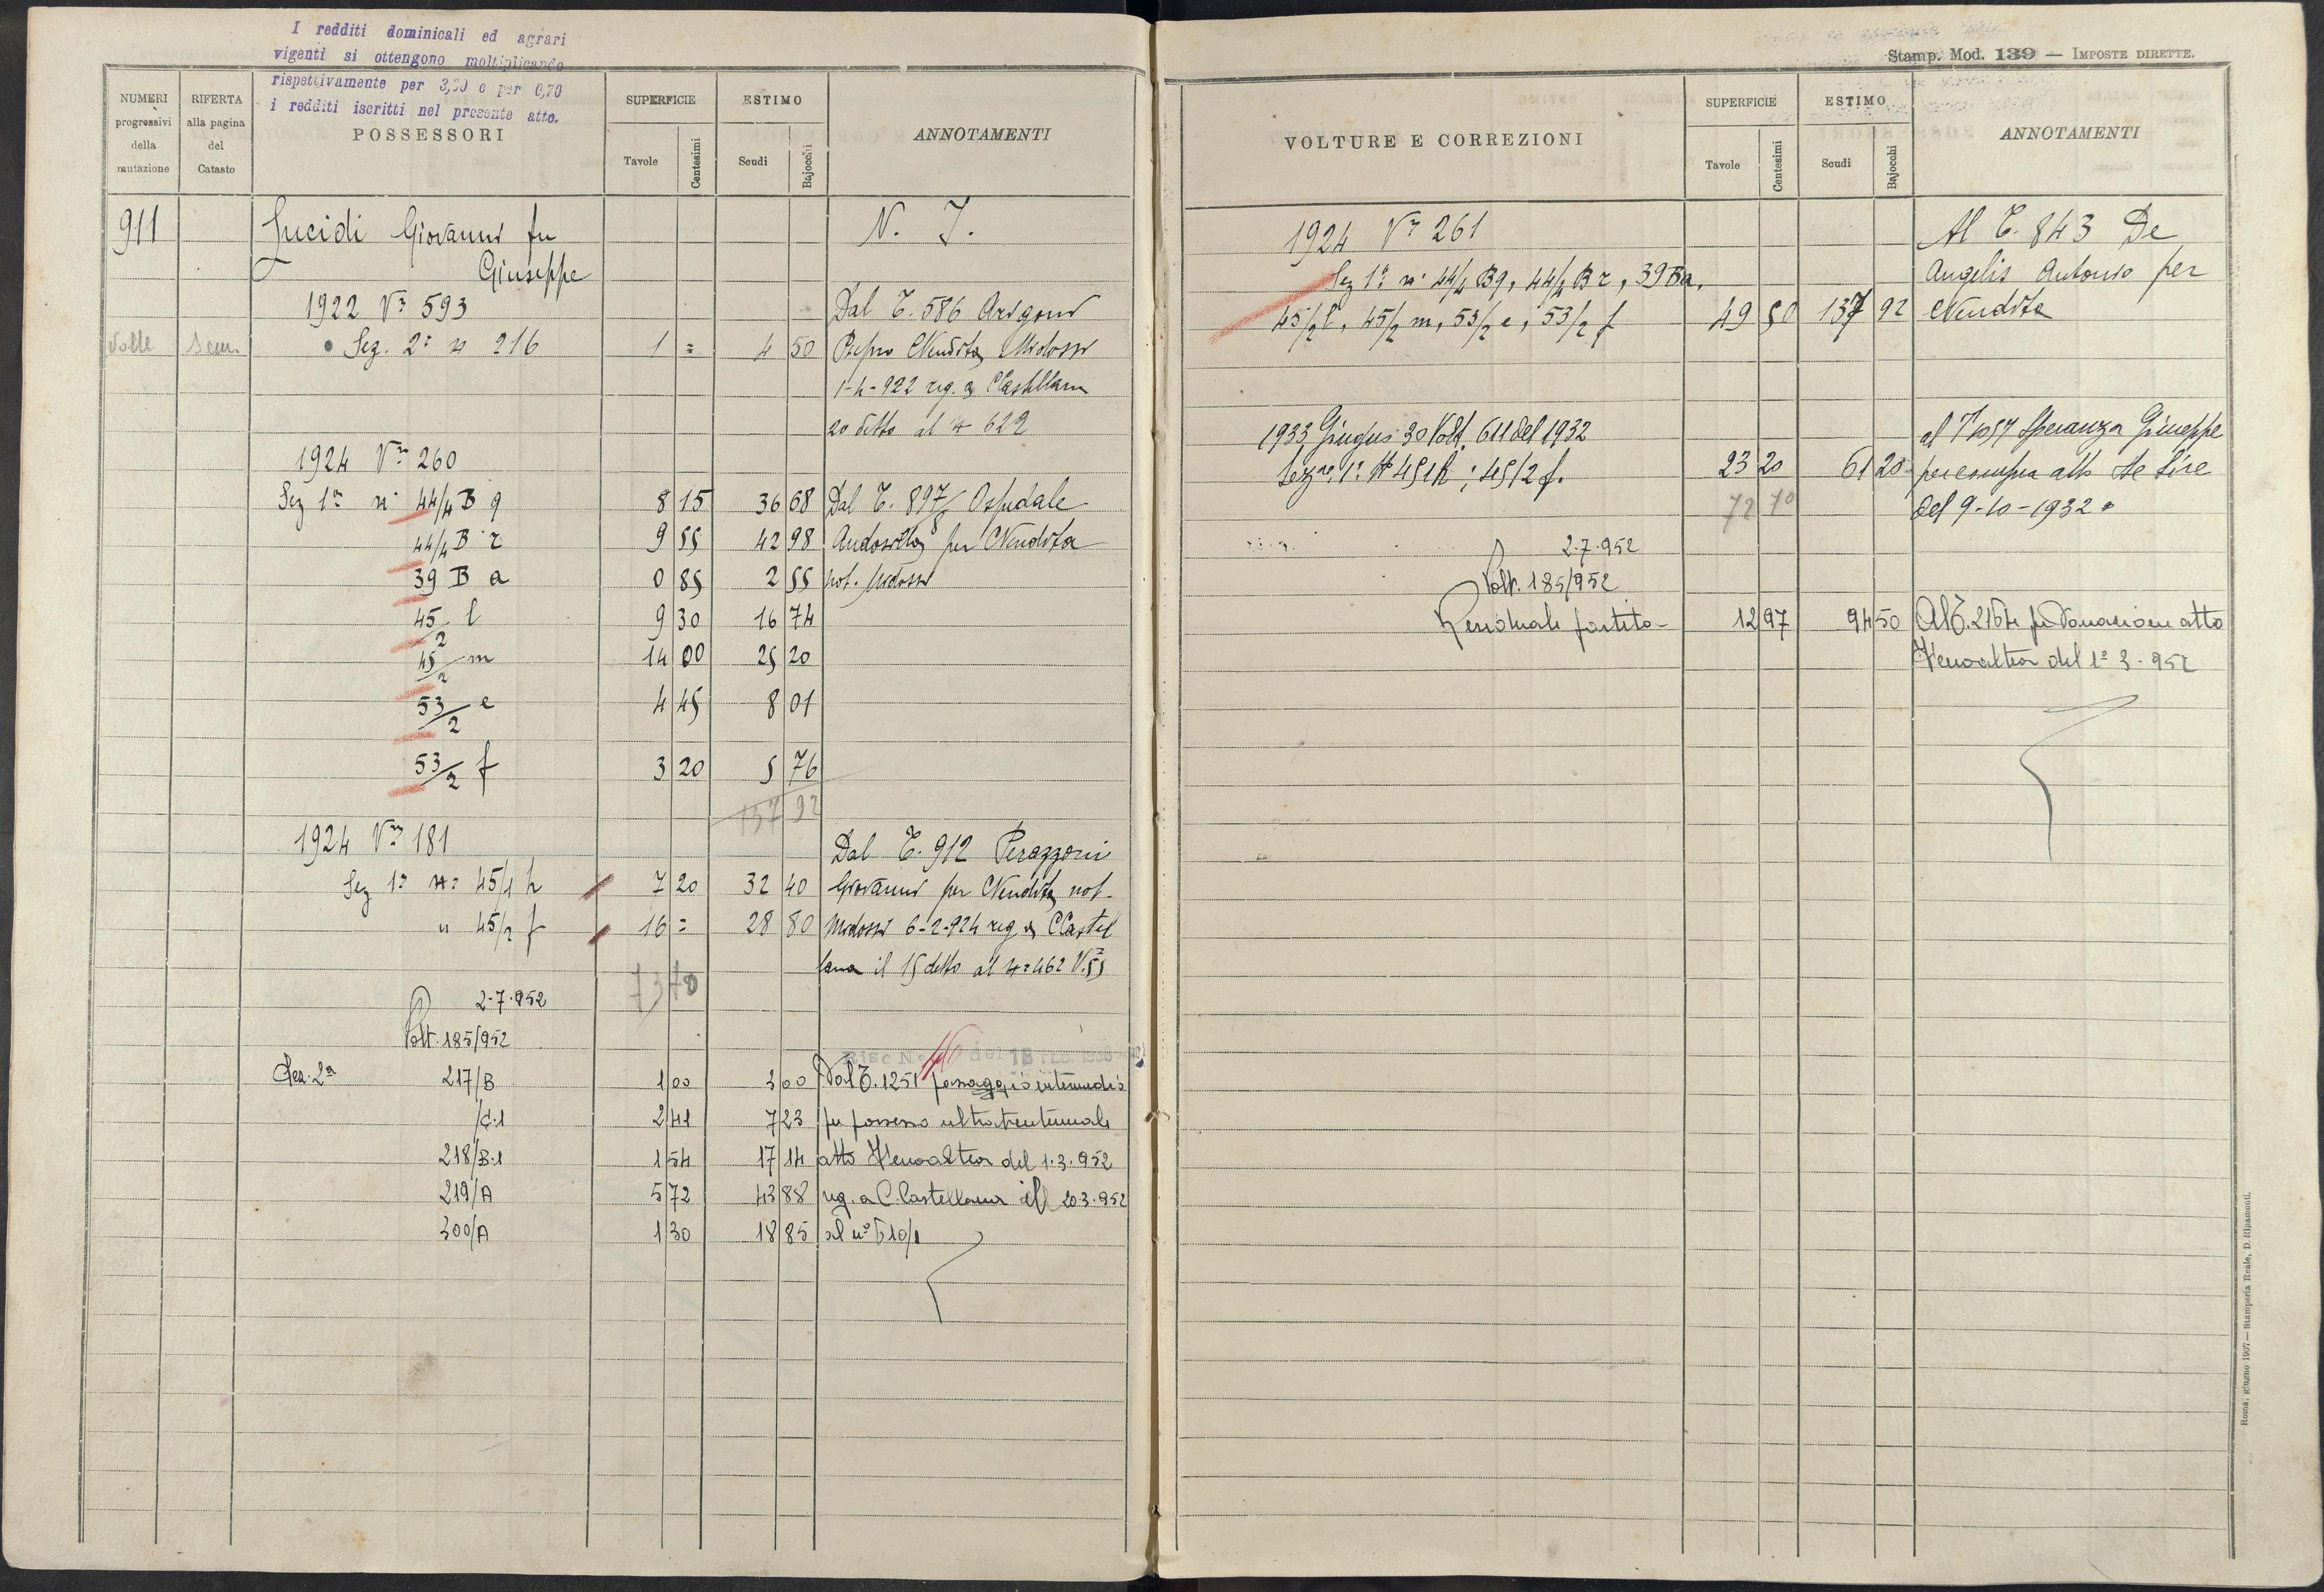 I redditi dominicali ed agrari
vigenti si ottengono moltiplicando
rispettivamente per 3,00 e per 0,70
i redditi iscritti nel presente atto.
NUMERI progressivi della mutazione
RIFERTA alla pagina del Catasto
POSSESSORI
SUPERFICIE
Tavole Centesimi
ESTIMO
Scudi Bajocchi
ANNOTAMENTI
911 Lucidi Giovanni fu N. I.
Giuseppe
1922 Vra 593 Dal T. 586
Valle Sem. Sez. 2a n 216 1 = 4 50 Vendita Midossi
1-4-922 reg. a CCastellana
20 detto al n 622
1924 Vra 260
Sez 1a n. 44/4 B q 8 15 36 68 Dal T. 897/8 Ospedale
44/4 B r 9 55 42 98 Andosilla per Vendita
39 B a 0 85 2 55 not. Midossi
45/2 l 9 30 16 74
45/2 m 14 00 25 20
53/2 e 4 45 8 01
53/2 f 3 20 5 76
137 92
1924 Vra 181 Dal T. 912 Perazzoni
Sez 1a n: 45/1 h 7 20 32 40 Giovanni per Vendita not.
" 45/2 f 16 = 28 80 Midossi 6-2-924 reg a CCastel
lana il 15 detto al n: 462 V. 55
73 70
2-7-952
Volt. 185/952
Risc N. 40 del 18
Sez. 2a 217/B 1 00 3 00 Dal T. 1251 passaggio intermedio
/C.1 2 41 7 23 per possesso ultratrentennale
218/B.1 1 54 17 14 atto del 1.3.952
219/A 5 72 43 88 reg. a C. Castellana il 20.3.952
300/A 1 30 18 85 al n° 510/1
Stamp. Mod. 139 — IMPOSTE DIRETTE.
VOLTURE E CORREZIONI
SUPERFICIE
Tavole Centesimi
ESTIMO
Scudi Bajocchi
ANNOTAMENTI
1924 Vra 261 Al T. 843 De
Sez 1a n. 44/4 Bq, 44/4 B r, 39 Ba, Angelis Antonio per
45/2 l, 45/2 m, 53/2 e, 53/2 f 49 50 137 92 Vendita
1933 Giugno 30 Volt. 611 del 1932 al T 1057 Speranza Giuseppe
Sezne 1a N 45 1 h; 45/2 f. 23 20 61 20 per compra atto
72 70 del 9-10-1932
2.7.952
Volt. 185/952
Residuale partita 12 97 94 50 Al T. 2164 per Donazione atto
del 1° 3.952
Roma, giugno 1907 — Stamperia Reale, D. Ripamonti.